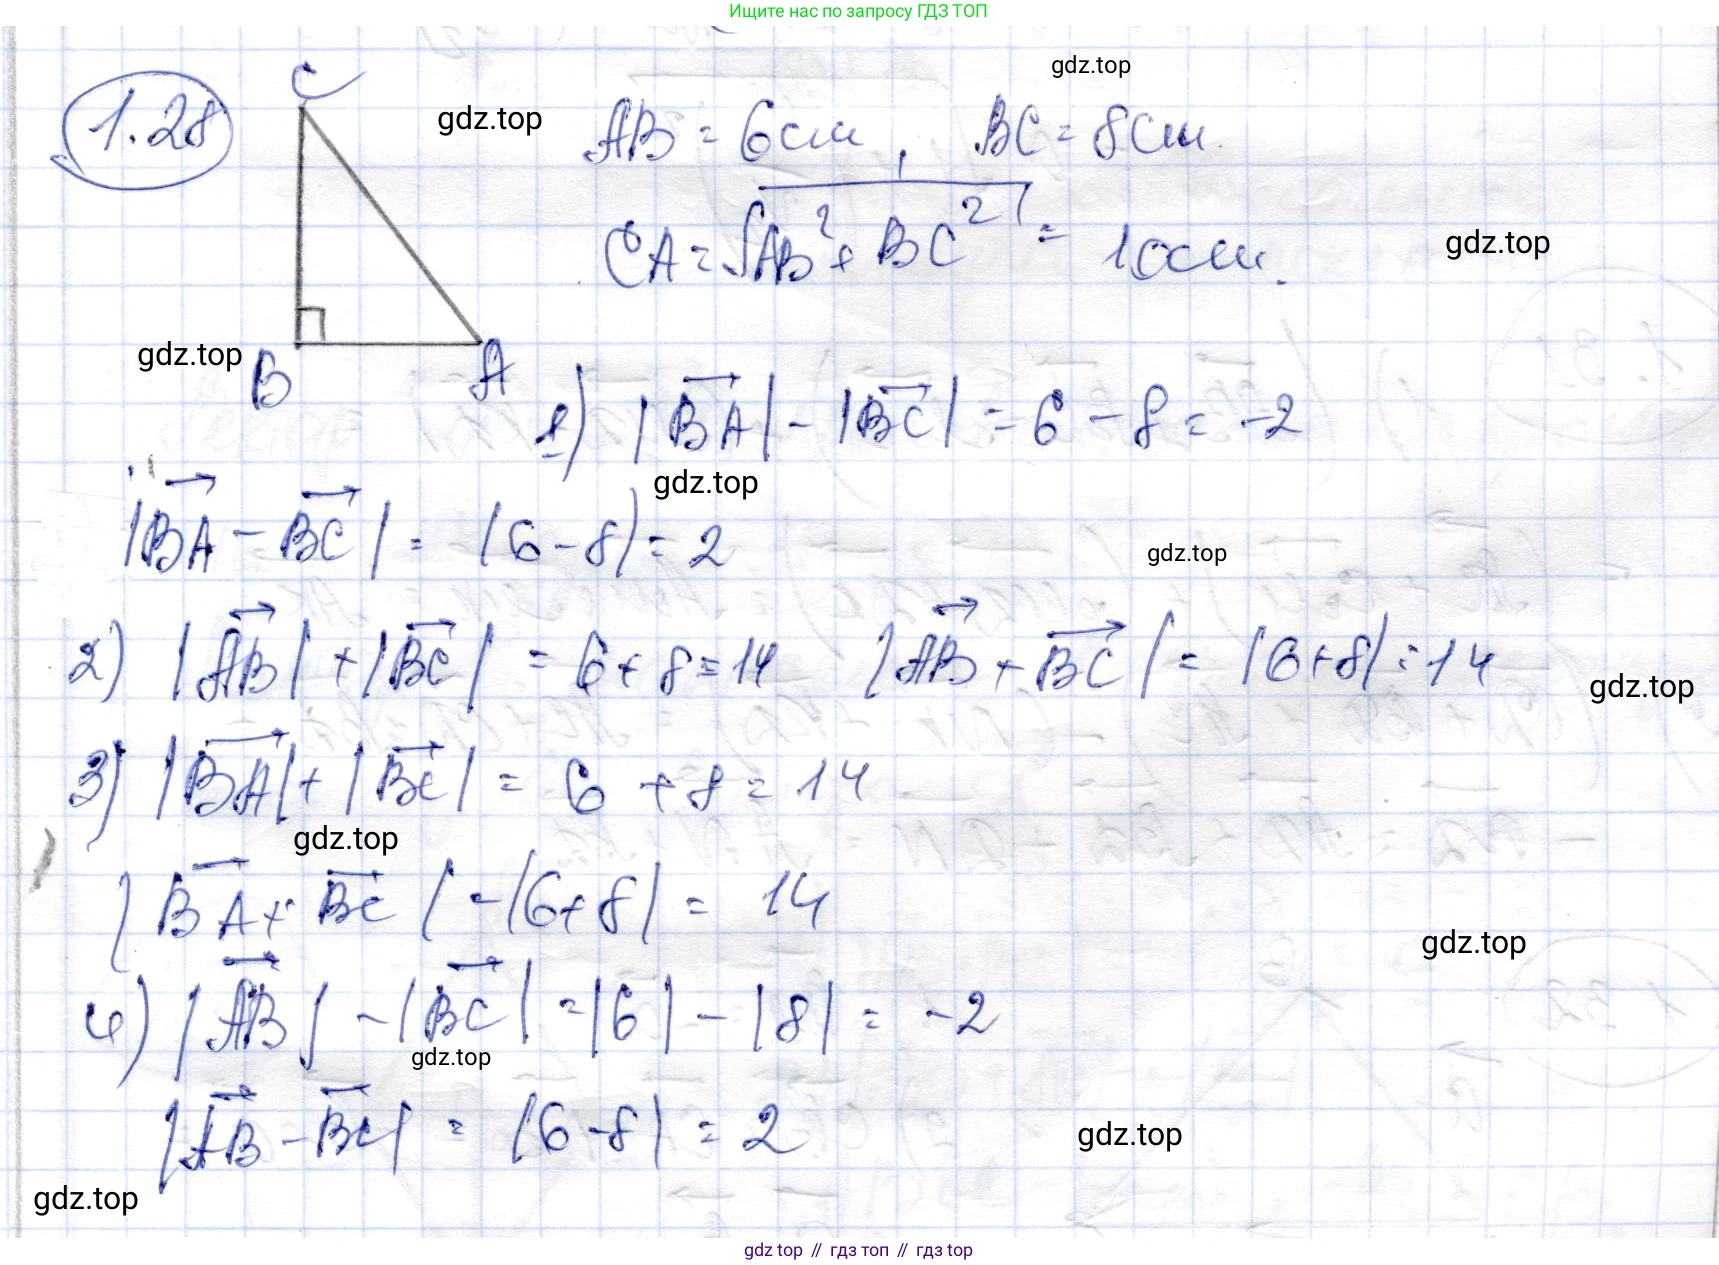 Ищите нас по запросу ГДЗ ТОП
1.28
C
gdz.top
gdz.top
AB = 6см, BC = 8см.
CA = √AB² + BC² = 10см.
gdz.top
gdz.top
B
A
1) |BA| - |BC| = 6 - 8 = -2
gdz.top
|BA - BC| = |6 - 8| = 2
gdz.top
2) |AB| + |BC| = 6 + 8 = 14 |AB + BC| = |6+8| = 14
gdz.top
3) |BA| + |BC| = 6 + 8 = 14
gdz.top
|BA + BC| = |6+8| = 14
gdz.top
4) |AB| - |BC| = |6| - |8| = -2
gdz.top
|AB - BC| = |6-8| = 2
gdz.top
gdz.top
gdz top // гдз топ // гдз top